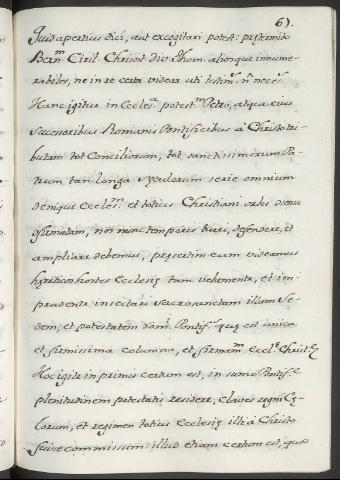 61.
Quid apertius dici, aut excogitari potest? prętermitto
Bern.m Ciril. Chrisost. div. Thom. aliosque innume-
rabiles, ne in re certa videar uti testim.s ñ neces.s
Hanc igitur in Eccles.a potest.m Petro, atque eius
Successoribus Romanis Pontificibus à Christo tri-
butam tot Conciliorum, tot sanctissimorum Pa-
trum tam longa sęculorum serie omnium
denique Eccles.m et totius Christiani orbis consensu
firmatam, nos nunc temporis tueri, defendere, et
ampliare debemus, pręsertim cum videamus
hęreticos hostes Ecclesię tam vehementer, et im-
prudenter insectari sacrosanctam illam Se-
dem, et potestatem Rom.i Pontif.s quę est unica
et firmissima columna, et firmam.m Eccl.ę Christ
Hoc igitur in primis certum est, in sumo Pontif.e
plenitudinem potestatis residere, claves regni Cę-
lorum, et regimen totius Ecclesię illi à Christo
fuisse commissum: illud etiam certum est, quod